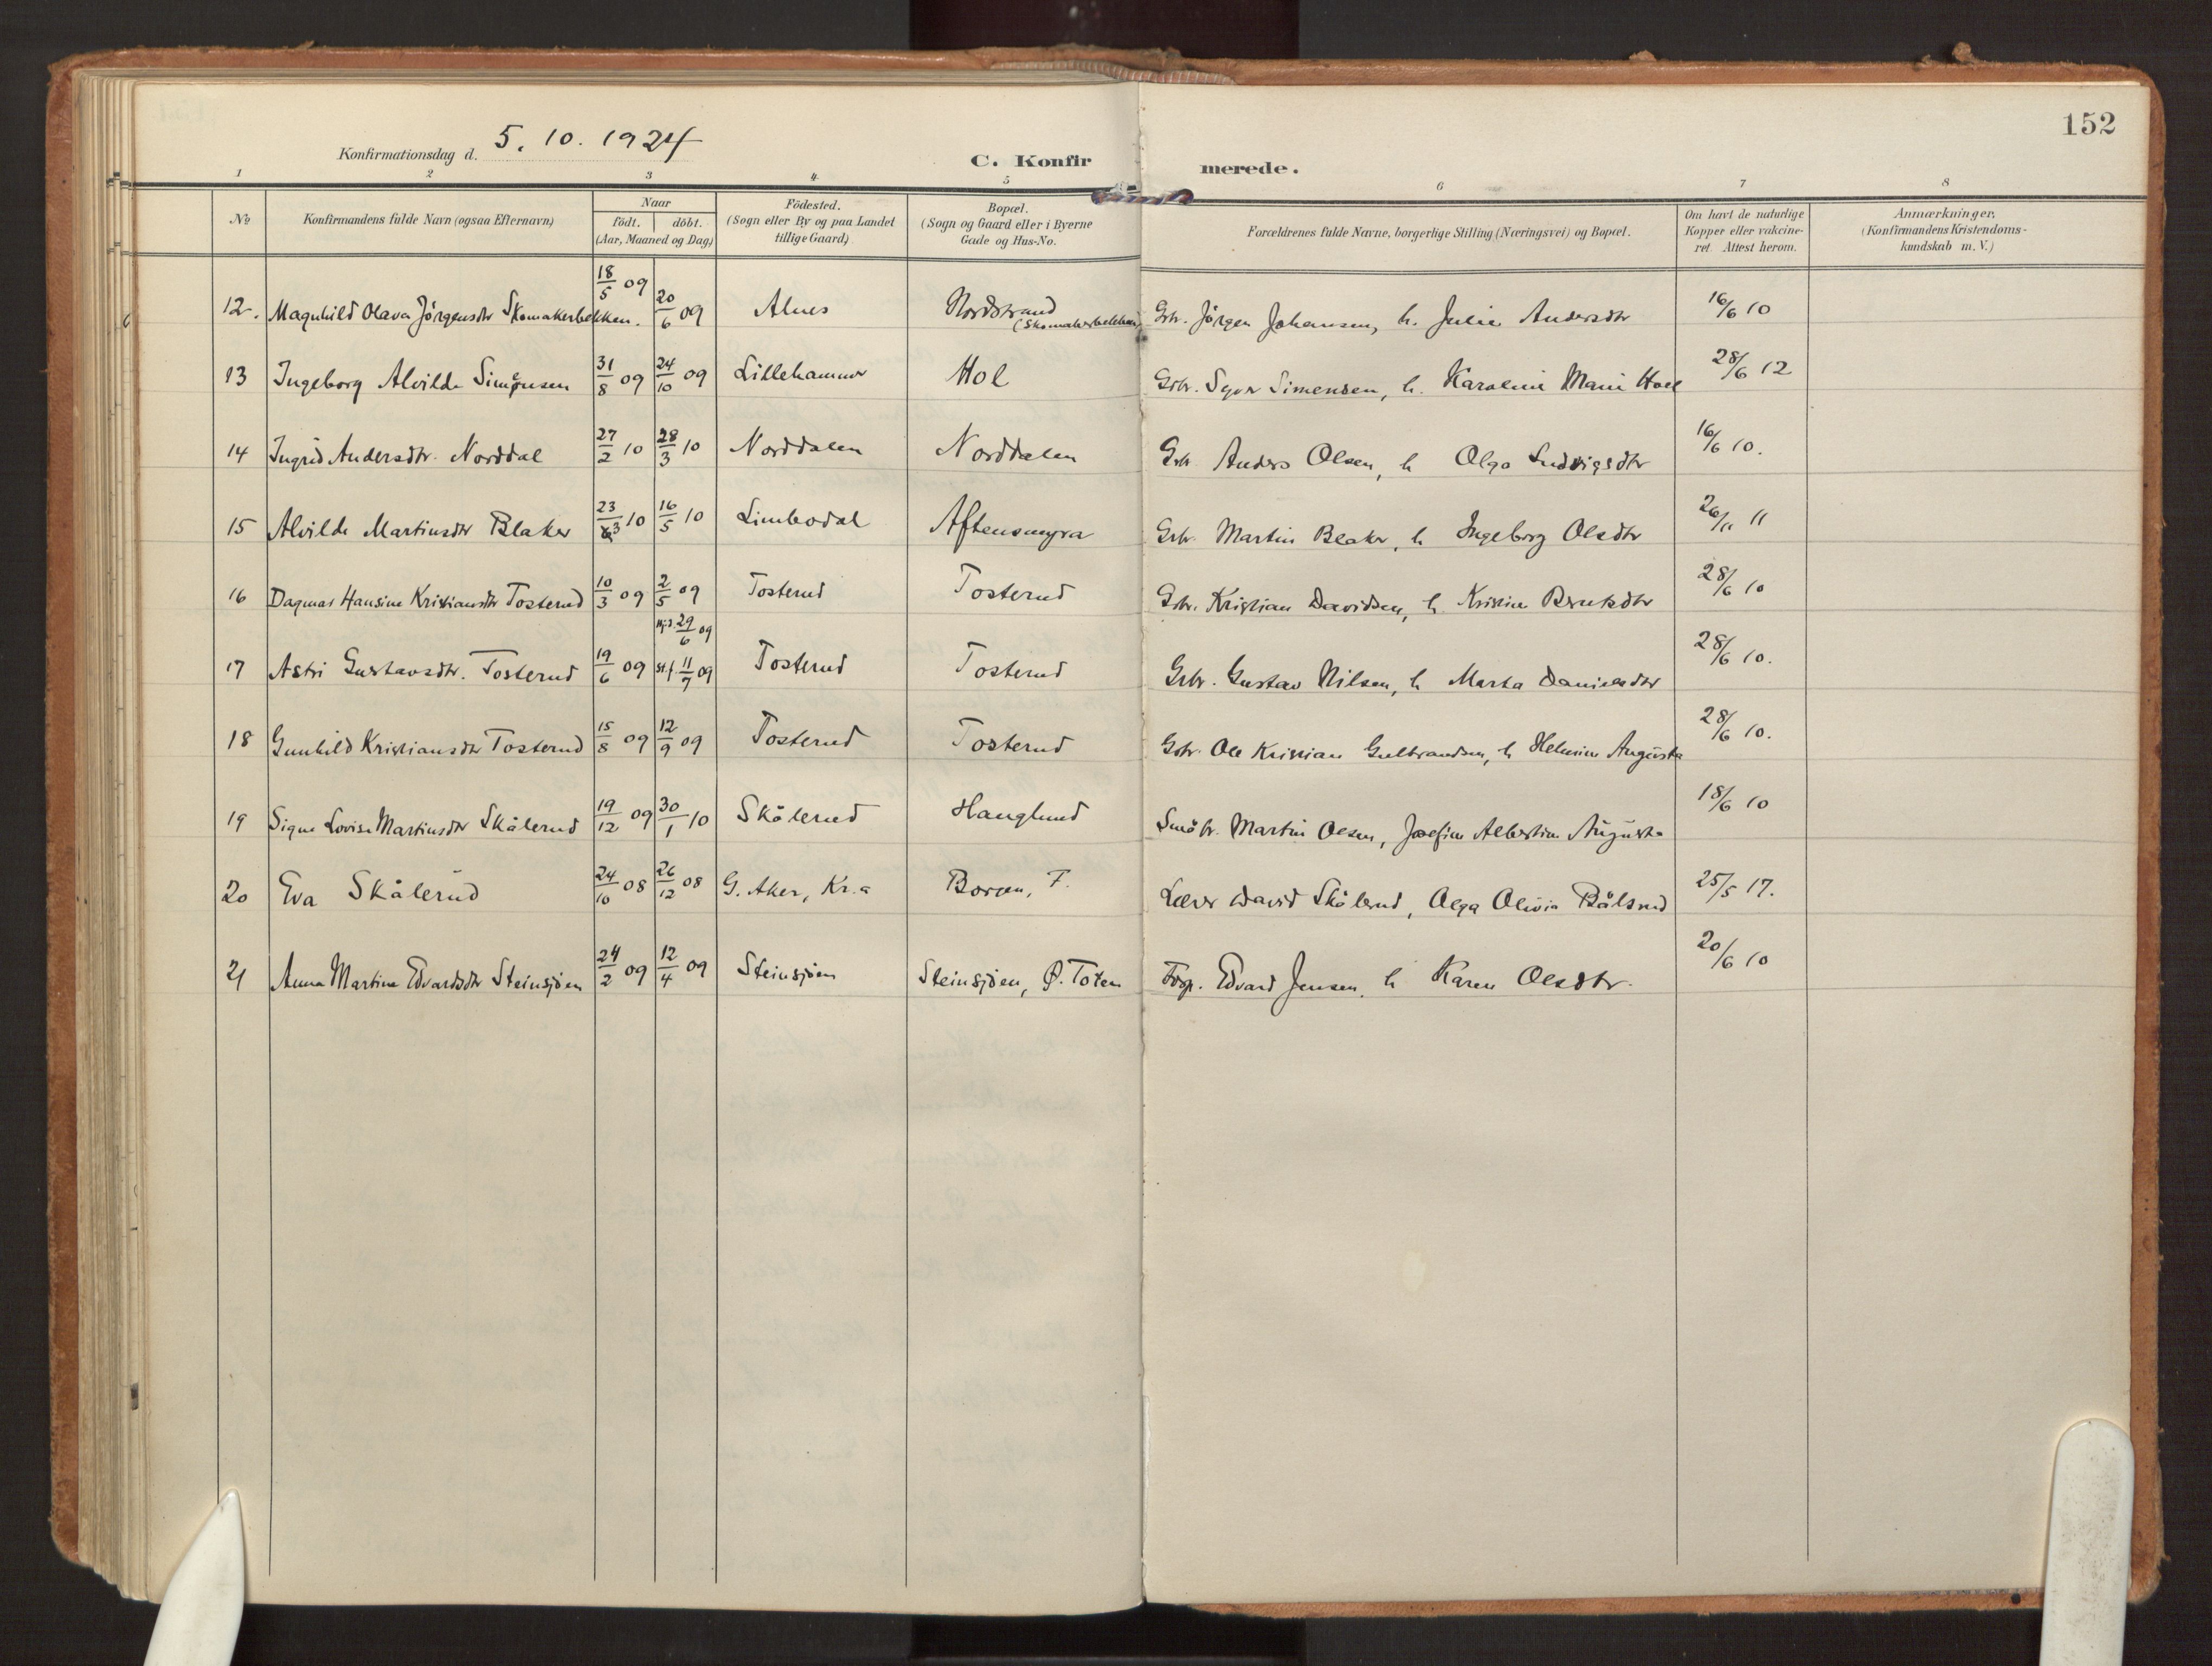 152
Konfirmationsdag d. 5. 10. 1924
C. Konfirmerede.
1 2 3 4 5 6 7 8
No
Konfirmandens fulde Navn (ogsaa Efternavn)
Naar
födt. döbt.
(Aar, Maaned og Dag)
Födested.
(Sogn eller By og paa Landet
tillige Gaard)
Bopæl.
(Sogn og Gaard eller i Byerne
Gade og Hus-No.
Forældrenes fulde Navne, borgerlige Stilling (Næringsvei) og Bopæl.
Om havt de naturlige
Kopper eller vakcine-
ret. Attest herom.
Anmærkninger,
(Konfirmandens Kristendoms-
kundskab m. V.)
12. Magnhild Olava Jörgensdtr Skomakerbekken. 18/5 09 20/6 09 Alnes Nordstrand (Skomakerbekken) Gbr. Jörgen Johansen, h. Julie Andersdtr 16/6 10
13 Ingeborg Alvilde Simønsen 31/8 09 24/10 09 Lillehammer Hol Gbr. Syver Simensen, h. Karoline Marie Hoel 28/6 12
14 Ingrid Andersdtr. Norddal 27/2 10 28/3 10 Norddalen Norddalen Gbr. Anders Olsen, h Olga Ludvigsdtr 16/6 10.
15 Alvilde Martinsdtr Blaker 23/3 10 16/5 10 Limbodal Aftensmyra Gbr. Martin Blaker, h Ingeborg Olsdtr 26/11 11
16 Dagmar Hansine Kristiansdtr Tosterud 10/3 09 2/5 09 Tosterud Tosterud Gbr. Kristian Davidsen, h. Kristine Berntsdtr 28/6 10
17 Astri Gustavsdtr. Tosterud 19/6 09 Hj.d. 29/6 09 st.f. 11/7 09 Tosterud Tosterud Gbr. Gustav Nilsen, h Marta Danielsdtr 28/6 10.
18 Gunhild Kristiansdtr Tosterud 15/8 09 12/9 09 Tosterud Tosterud Gbr. Ole Kristian Gulbrandsen, h Helmine Augusta 28/6 10.
19 Signe Lovise Martinsdtr Skålerud 19/12 09 30/1 10 Skålerud Hauglund Småbr. Martin Olsen, Josefine Albertine Augusta 18/6 10
20 Eva Skålerud 24/10 08 26/12 08 G. Aker, Kr.a Borgen, F. Lærer David Skålerud, Olga Olivia Bålsrud 25/5 17.
21 Anna Martine Edvardsdtr Steinsjöen 24/2 09 12/4 09 Steinsjöen Steinsjöen, Ø. Toten Forp. Edvard Jensen, h Karen Olsdtr. 20/6 10